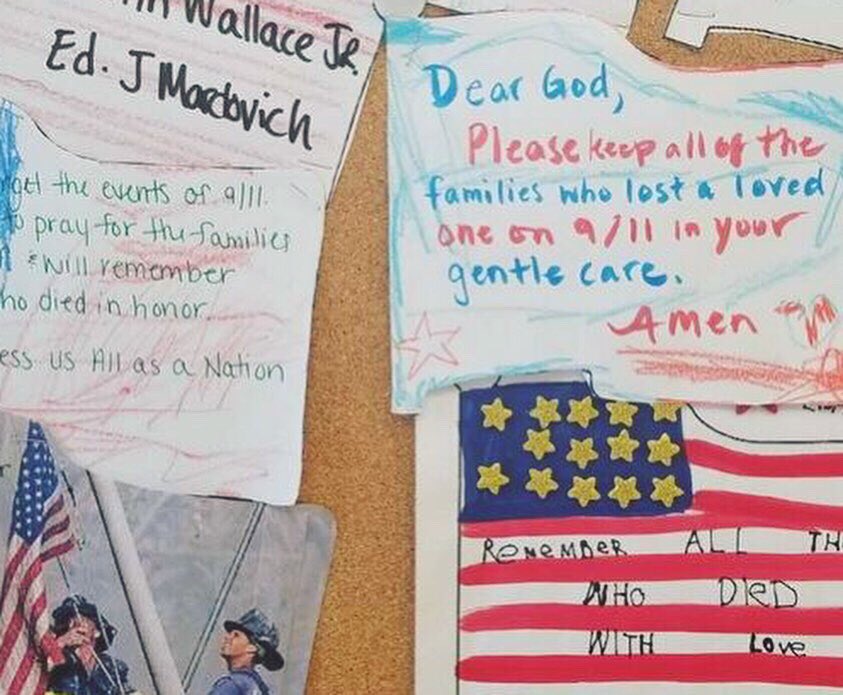 Wallace Jr.
Ed. J Mardovich
get the events of 9/11.
to pray for the families
& will remember
who died in honor.
ess us All as a Nation
Dear God,
Please keep all of the
families who lost a loved
one on 9/11 in your
gentle care.
Amen
REMEMBER ALL TH
WHO DIED
WITH Love